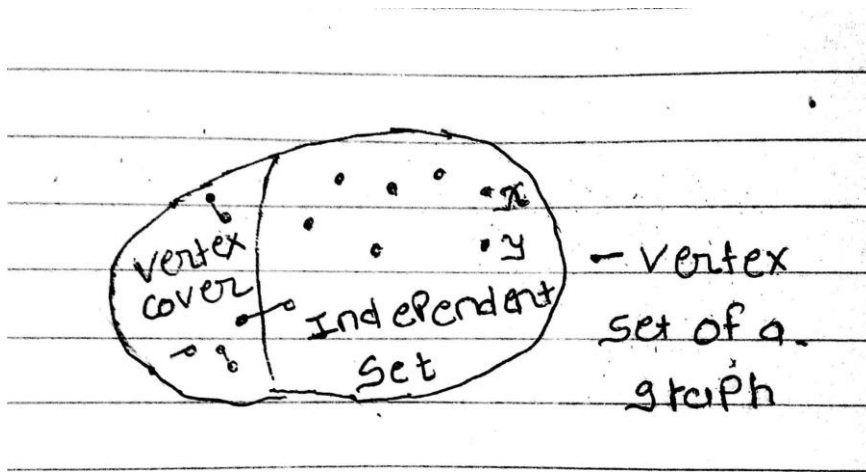 x
vertex
cover
y
Independent
set
- vertex
set of a
graph